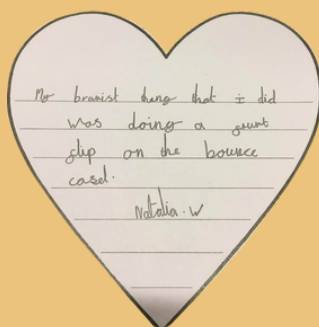 My bravist thang that i did
was doing a frunt
flip on the bounce
casel.
Natalia. W